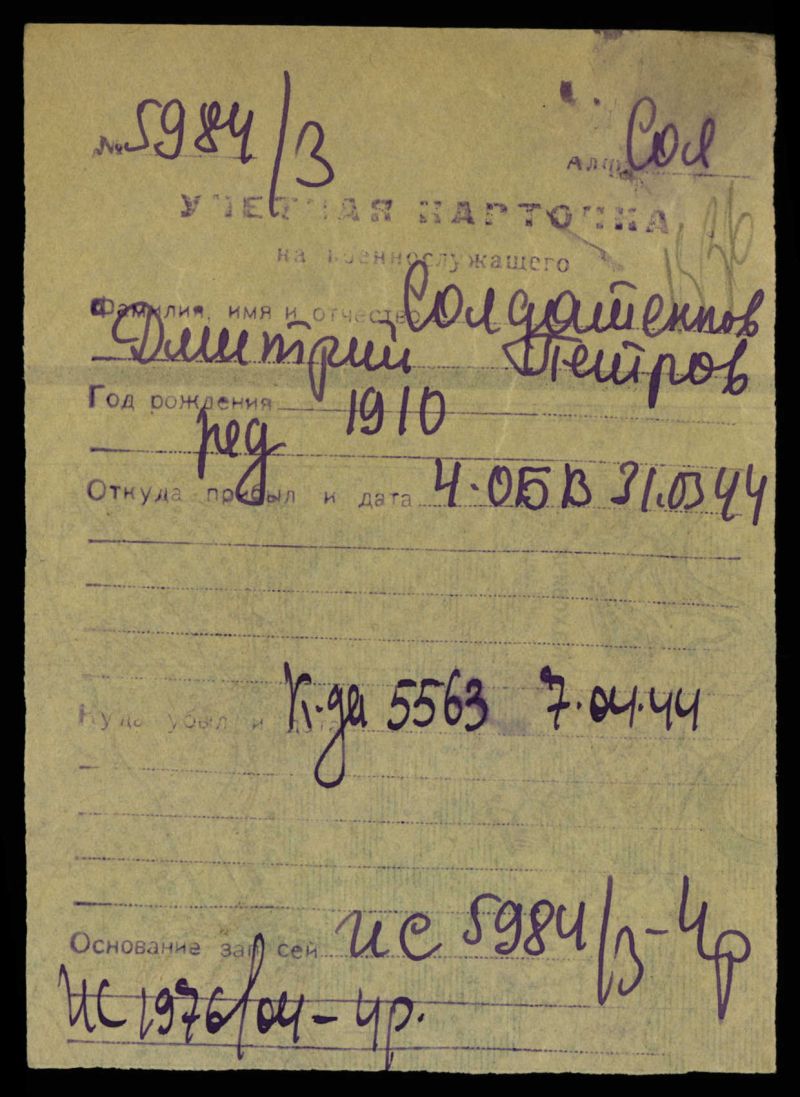 № 5984/3 Алф. Сол
УЧЕТНАЯ КАРТОЧКА
на военнослужащего
1336
Фамилия, имя и отчество Солдатенков
Дмитрий Петров
Год рождения 1910
ряд
Откуда прибыл и дата 4.ОБВ 31.03 44
Куда убыл и дата К-да 5563 7.04.44
Основание записей ИС 5984/3-4р
ИС 1976/04-4р.